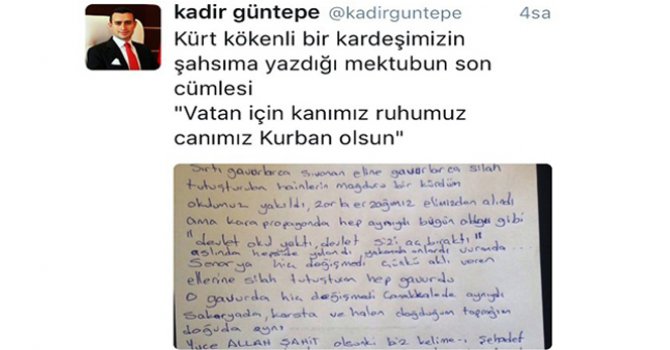 kadir güntepe @kadirguntepe 4sa
Kürt kökenli bir kardeşimizin
şahsıma yazdığı mektubun son
cümlesi
"Vatan için kanımız ruhumuz
canımız Kurban olsun"
Sırtı gavurlarca sıvanan eline gavurlarca silah
tutuşturulan hainlerin mağduru bir kürdüm
okulumuz yakıldı, zorla erzağımız elimizden alındı
ama kara propaganda hep aynıydı bugün olduğu gibi
"devlet okul yaktı, devlet sizi aç bıraktı"
aslında hepside yalandı yakanda onlardı vuranda...
Senaryo hiç değişmedi çünkü aklı veren
ellerine silah tutuşturan hep gavurdu
O gavurda hiç değişmedi Çanakkalede aynıydı
Sakaryada, karsta ve halen doğduğum toprağım
doğuda aynı
Yüce ALLAH ŞAHİT olsunki biz kelime-i Şehadet